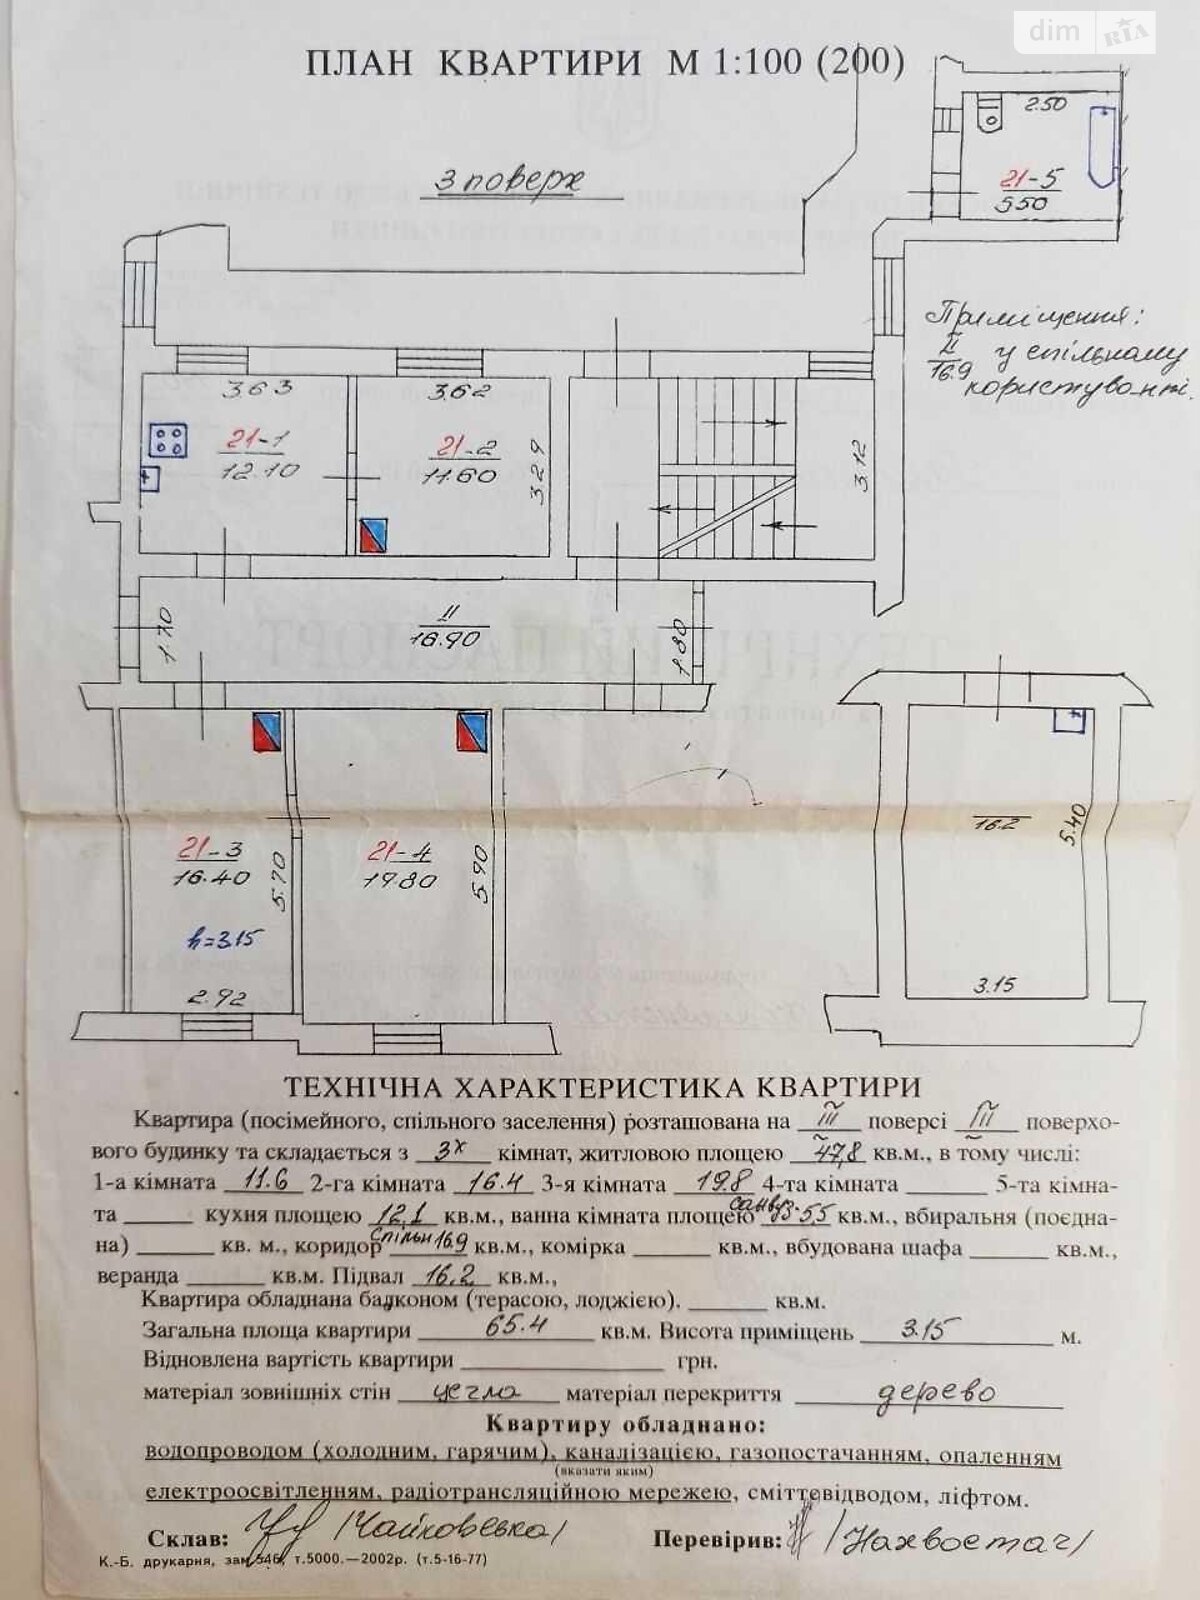 dim RIA
ПЛАН КВАРТИРИ М 1:100 (200)
3 поверх
2.50
21-5
5.50
Приміщення:
II
16.9
у спільному
користуванні.
3.63
21-1
12.10
3.62
21-2
11.60
3.29
3.12
1.70
II
16.90
1.80
21-3
16.40
5.70
h=3.15
2.92
21-4
19.80
5.90
16.2
5.40
3.15
ТЕХНІЧНА ХАРАКТЕРИСТИКА КВАРТИРИ
Квартира (посімейного, спільного заселення) розташована на III поверсі III поверхо-
вого будинку та складається з 3х кімнат, житловою площею 47,8 кв.м., в тому числі:
1-а кімната 11.6 2-га кімната 16.4 3-я кімната 19.8 4-та кімната ______ 5-та кімна-
та ______ кухня площею 12,1 кв.м., ванна кімната площею санвуз. 5,5 кв.м., вбиральня (поєдна-
на) ______ кв. м., коридор спільн 16.9 кв.м., комірка ______ кв.м., вбудована шафа ______ кв.м.,
веранда ______ кв.м. Підвал 16.2 кв.м.,
Квартира обладнана балконом (терасою, лоджією). ______ кв.м.
Загальна площа квартири 65.4 кв.м. Висота приміщень 3.15 м.
Відновлена вартість квартири ______ грн.
матеріал зовнішніх стін цегла матеріал перекриття дерево
Квартиру обладнано:
водопроводом (холодним, гарячим), каналізацією, газопостачанням, опаленням
(вказати яким)
електроосвітленням, радіотрансляційною мережею, сміттєвідводом, ліфтом.
Склав: /Чайковська/ Перевірив: /Нахвостач/
К.-Б. друкарня, зам. 546, т.5000.—2002р. (т.5-16-77)